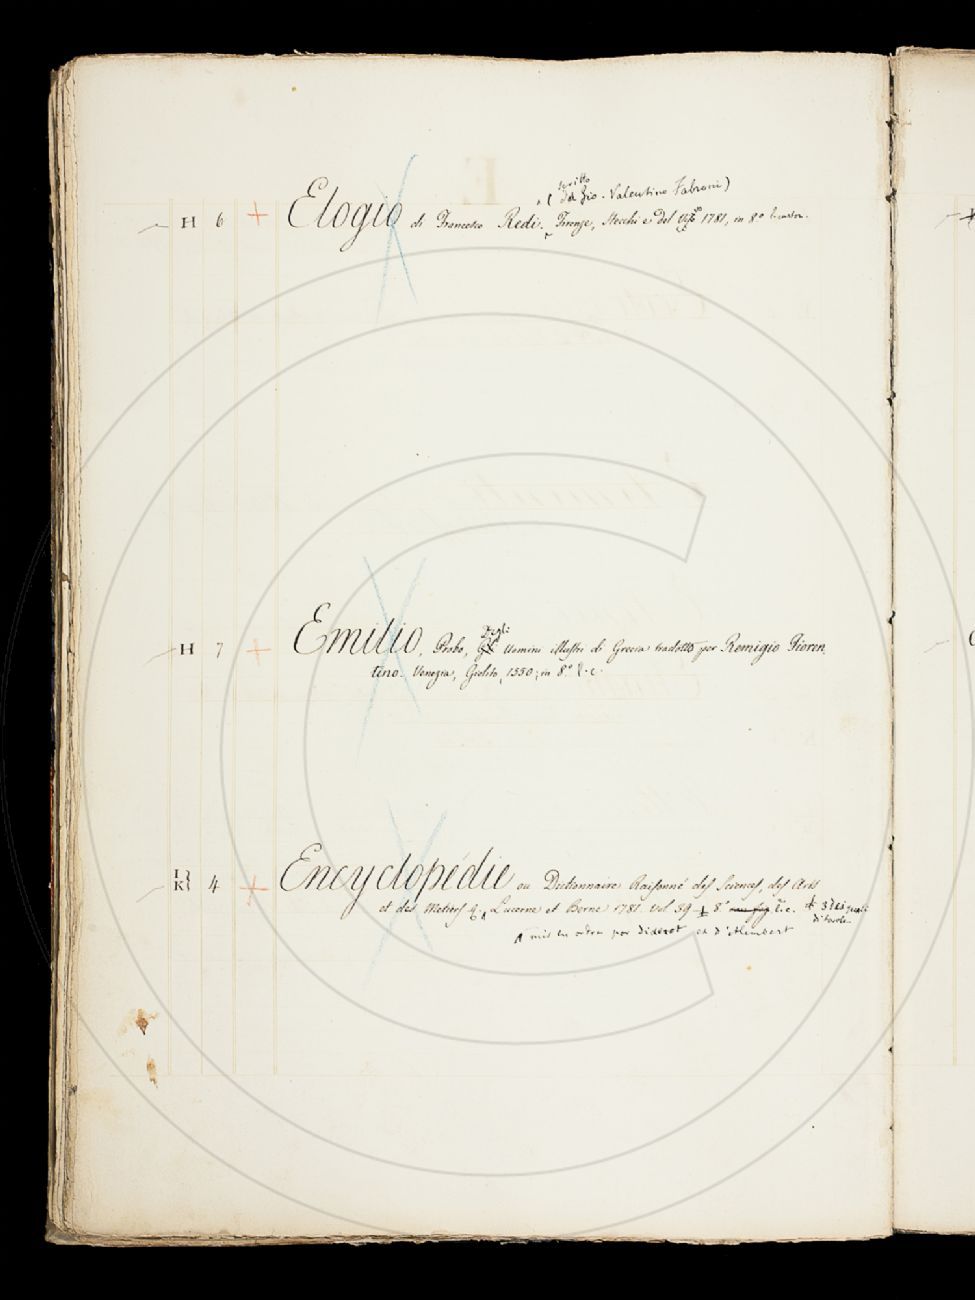 scritto
( da Gio. Valentino Fabroni )
H 6 + Elogio di Francesco Redi. Firenze, Stecchi e del 1781, in 8º
Degli
H 7 + Emilio, Probo, Uomini illustri di Grecia tradotto per Remigio Fioren
tino. Venezia, Giolito, 1550, in 8º l. c.
I
K 4 + Encyclopédie ou Dictionnaire Raisonné des Sciences, des Arts
et des Métiers &. Lucerne et Berne 1781. Vol. 39 8.º
di tavole
mis en ordre par Diderot et d'Alembert